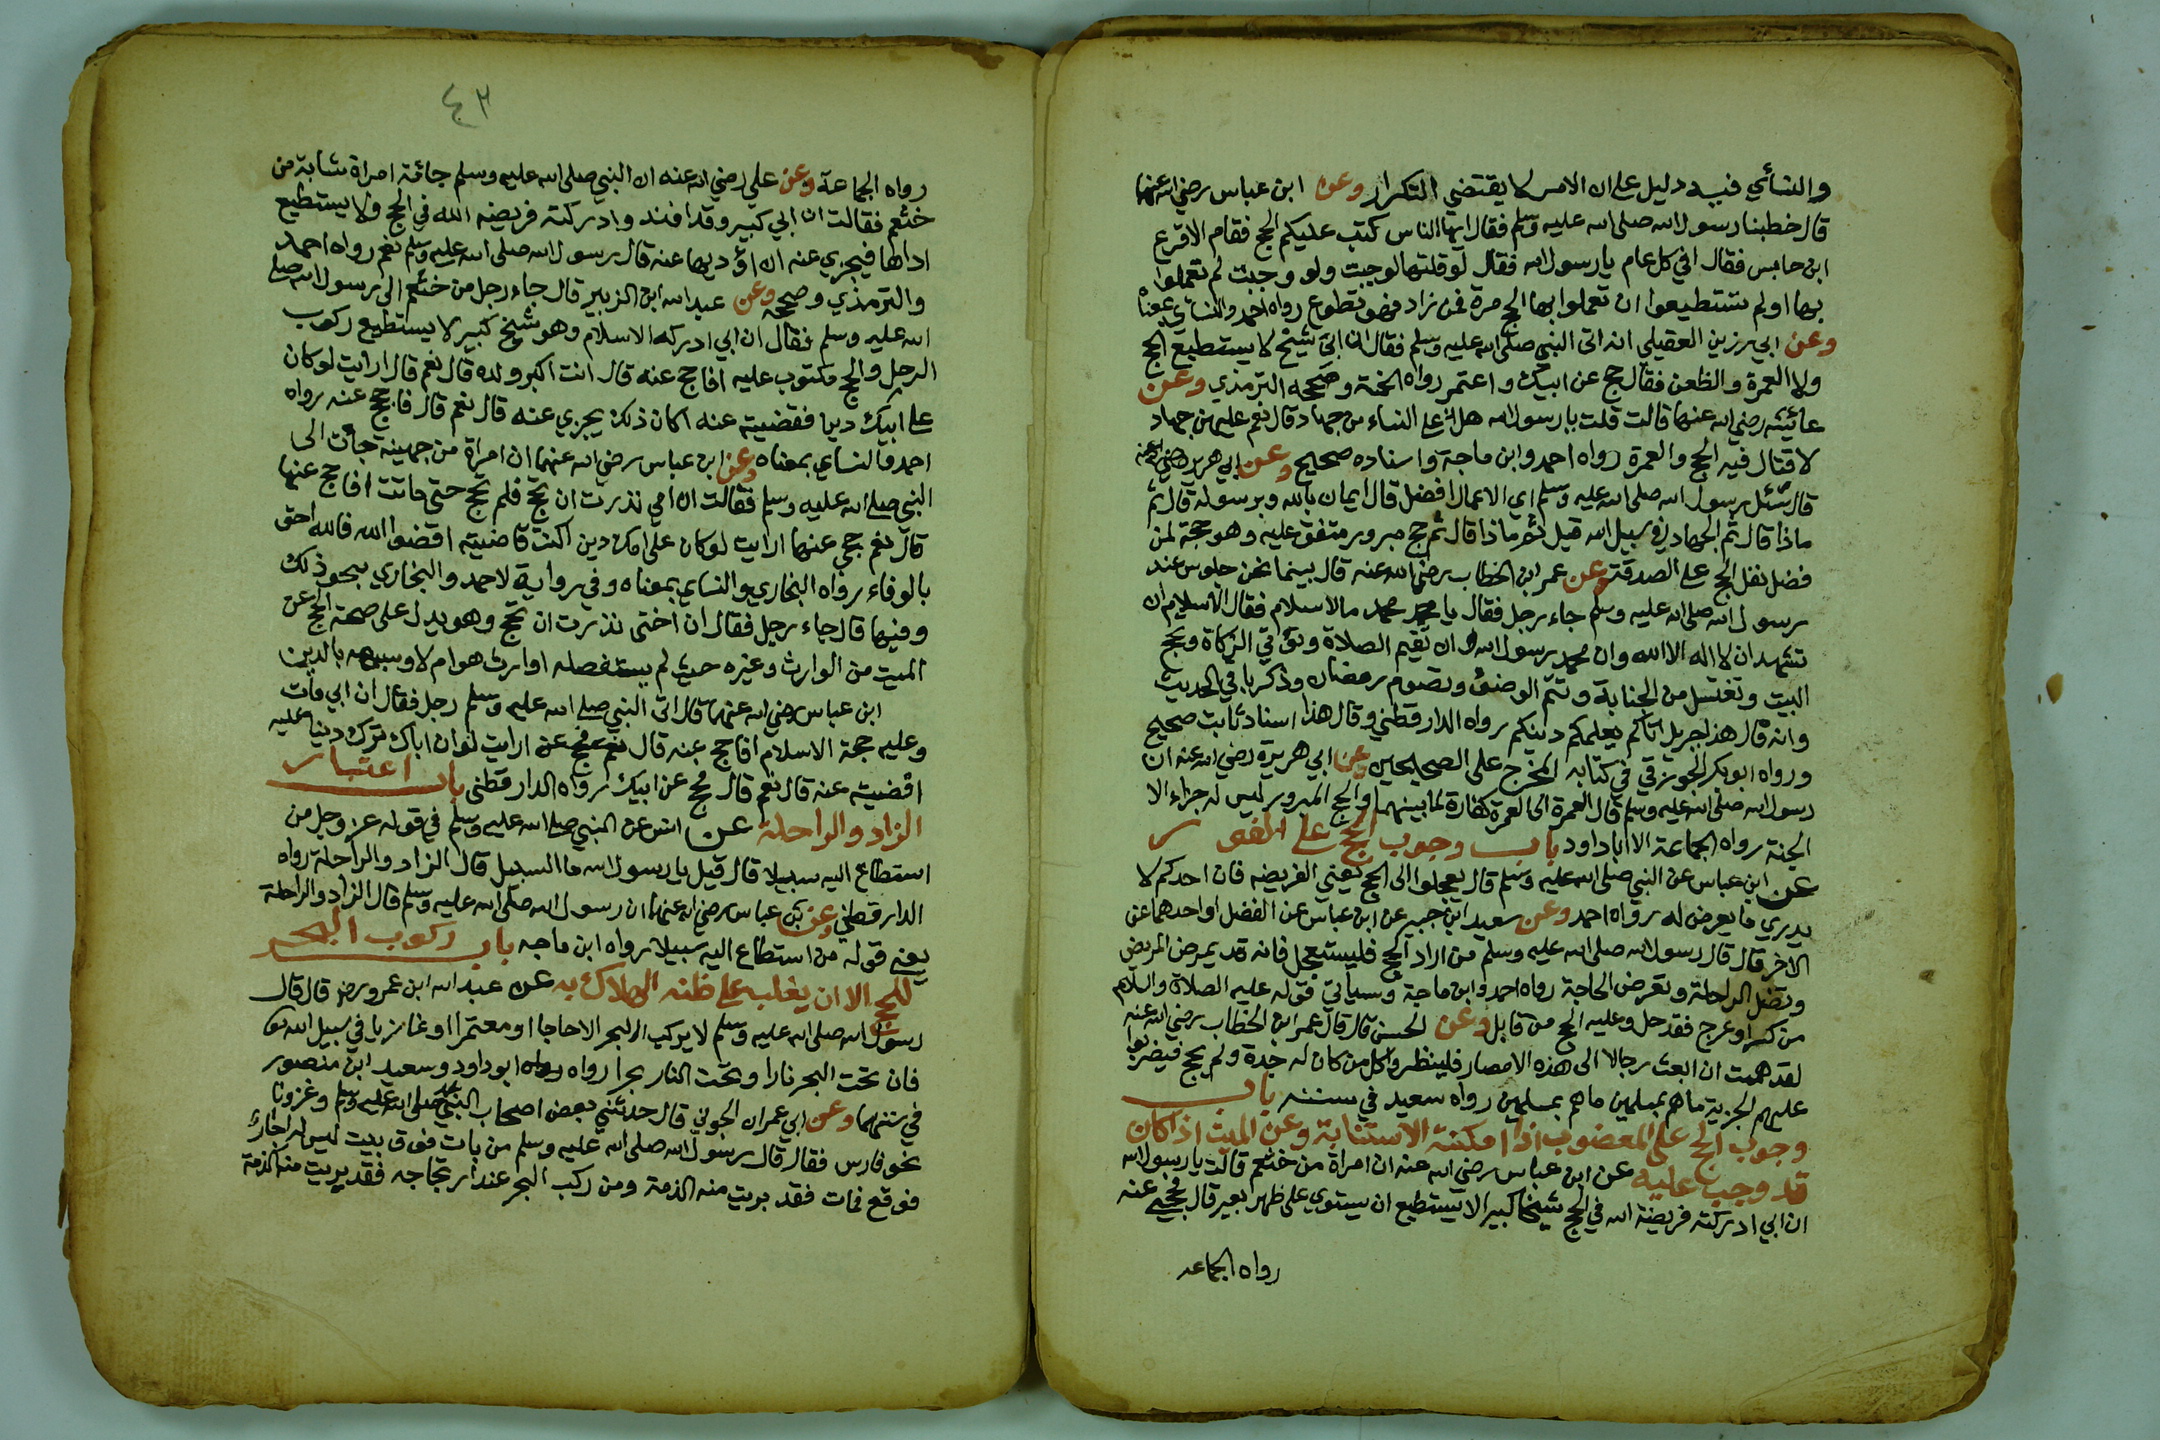 والنسائي فيه دليل على ان الامر لا يقتضي التكرار وعن ابن عباس رضي الله عنهما
قال خطبنا رسول الله صلى الله عليه وسلم فقال ايها الناس كتب عليكم الحج فقام الاقرع
ابن حابس فقال افي كل عام يا رسول الله فقال لو قلتها لوجبت ولو وجبت لم تعملوا
بها ولم تستطيعوا ان تعملوا بها الحج مرة فمن زاد فهو تطوع رواه احمد والنسائي بمعناه
وعن ابي رزين العقيلي انه اتى النبي صلى الله عليه وسلم فقال ان ابي شيخ لا يستطيع الحج
ولا العمرة والظعن فقال حج عن ابيك واعتمر رواه الخمسة وصححه الترمذي وعن
عائشه رضي الله عنها قالت قلت يا رسول الله هل على النساء من جهاد قال نعم عليهن جهاد
لا قتال فيه الحج والعمرة رواه احمد وابن ماجة واسناده صحيح وعن ابي هريرة رضي الله عنه
قال سئل رسول الله صلى الله عليه وسلم اي الاعمال افضل قال ايمان بالله وبرسوله قال ثم
ماذا قال ثم الجهاد في سبيل الله قيل ثم ماذا قال ثم حج مبرور متفق عليه وهو حجة لمن
فضل نفل الحج على الصدقة وعن عمر ابن الخطاب رضي الله عنه قال بينما نحن جلوس عند
رسول الله صلى الله عليه وسلم جاء رجل فقال يا محمد ما الاسلام فقال الاسلام ان
تشهد ان لا اله الا الله وان محمد رسول الله وان تقيم الصلاة وتؤتي الزكاة وتحج
البيت وتغتسل من الجنابة وتتم الوضوء وتصوم رمضان وذكر باقي الحديث
وانه قال هذا جبريل اتاكم يعلمكم دينكم رواه الدارقطني وقال هذا اسناد ثابت صحيح
ورواه ابو بكر الجوزقي في كتابه المخرج على الصحيحين وعن ابي هريرة رضي الله عنه ان
رسول الله صلى الله عليه وسلم قال العمرة الى العمرة كفارة لما بينهما والحج المبرور ليس له جزاء الا
الجنة رواه الجماعة الا ابا داود باب وجوب الحج على الفور
عن ابن عباس عن النبي صلى الله عليه وسلم قال تعجلوا الى الحج يعني الفريضه فان احدكم لا
يدري ما يعرض له رواه احمد وعن سعيد ابن جبير عن ابن عباس عن الفضل او احدهما عن
الاخر قال قال رسول الله صلى الله عليه وسلم من اراد الحج فليستعجل فانه قد يمرض المريض
وتضل الراحلة وتعرض الحاجة رواه احمد وابن ماجة وسيأتي قوله عليه الصلاة والسلام
من كسر او عرج فقد حل وعليه الحج من قابل وعن الحسن قال قال عمر ابن الخطاب رضي الله عنه
لقد هممت ان ابعث رجالا الى هذه الامصار فلينظروا كل من كان له جدة ولم يحج فيضربوا
عليهم الجزية ما هم بمسلمين ما هم بمسلمين رواه سعيد في سننه باب
وجوب الحج على المعضوب اذا امكنته الاستنابة وعن الميت اذا كان
قد وجب عليه عن ابن عباس رضي الله عنه ان امراة من خثعم قالت يا رسول الله
ان ابي ادركته فريضة الله في الحج شيخا كبيرا لا يستطيع ان يستوي على ظهر بعير قال فحجي عنه
رواه الجماعه
٤٣
رواه الجماعة وعن علي رضي الله عنه ان النبي صلى الله عليه وسلم جائته امراة شابة من
خثعم فقالت ان ابي كبير وقد افند وادركته فريضه الله في الحج ولا يستطيع
اداها فيجزي عنه ان اؤديها عنه قال رسول الله صلى الله عليه وسلم نعم رواه احمد
والترمذي وصححه وعن عبد الله ابن الزبير قال جاء رجل من خثعم الى رسول الله صلى
الله عليه وسلم فقال ان ابي ادركه الاسلام وهو شيخ كبير لا يستطيع ركوب
الرحل والحج مكتوب عليه افاحج عنه قال انت اكبر ولده قال نعم قال ارايت لو كان
على ابيك دين فقضيته عنه اكان ذلك يجزي عنه قال نعم قال فاحجج عنه رواه
احمد والنساي بمعناه وعن ابن عباس رضي الله عنهما ان امراة من جهينة جأت الى
النبي صلى الله عليه وسلم فقالت ان امي نذرت ان تحج فلم تحج حتى ماتت افاحج عنها
قال نعم حجي عنها ارايت لو كان على امك دين اكنت قاضيته اقضوا الله فالله احق
بالوفاء رواه البخاري والنساي بمعناه وفي رواية لاحمد والبخاري بنحو ذلك
وفيها قال جاء رجل فقال ان اختي نذرت ان تحج وهو يدل على صحة الحج عن
الميت من الوارث وغيره حيث لم يستفصله اوارث هو ام لا وشبهه بالدين
ابن عباس رضي الله عنهما قال اتى النبي صلى الله عليه وسلم رجل فقال ان ابي مات
وعليه حجة الاسلام افاحج عنه قال ارايت لو ان اباك ترك دينا عليه
اقضيته عنه قال نعم قال فحج عن ابيك رواه الدارقطني باب اعتبار
الزاد والراحلة عن انس عن النبي صلى الله عليه وسلم في قوله عز وجل من
استطاع اليه سبيلا قال قيل يا رسول الله ما السبيل قال الزاد والراحلة رواه
الدارقطني وعن ابن عباس رضي الله عنهما ان رسول الله صلى الله عليه وسلم قال الزاد والراحلة
يعني قوله من استطاع اليه سبيلا رواه ابن ماجه باب ركوب البحر
للحج الا ان يغلب على ظنه الهلاك به عن عبد الله ابن عمرو رضي قال قال
رسول الله صلى الله عليه وسلم لا يركب البحر الا حاجا او معتمرا او غازيا في سبيل الله
فان تحت البحر نارا وتحت النار بحرا رواه ابو داود وسعيد ابن منصور
في سننهما وعن ابي عمران الجوني قال حدثني بعض اصحاب النبي صلى الله عليه وسلم وغزونا
نحو فارس فقال قال رسول الله صلى الله عليه وسلم من بات فوق بيت ليس له اجار
فوقع فمات فقد بريت منه الذمة ومن ركب البحر عند ارتجاجه فقد بريت منه الذمة